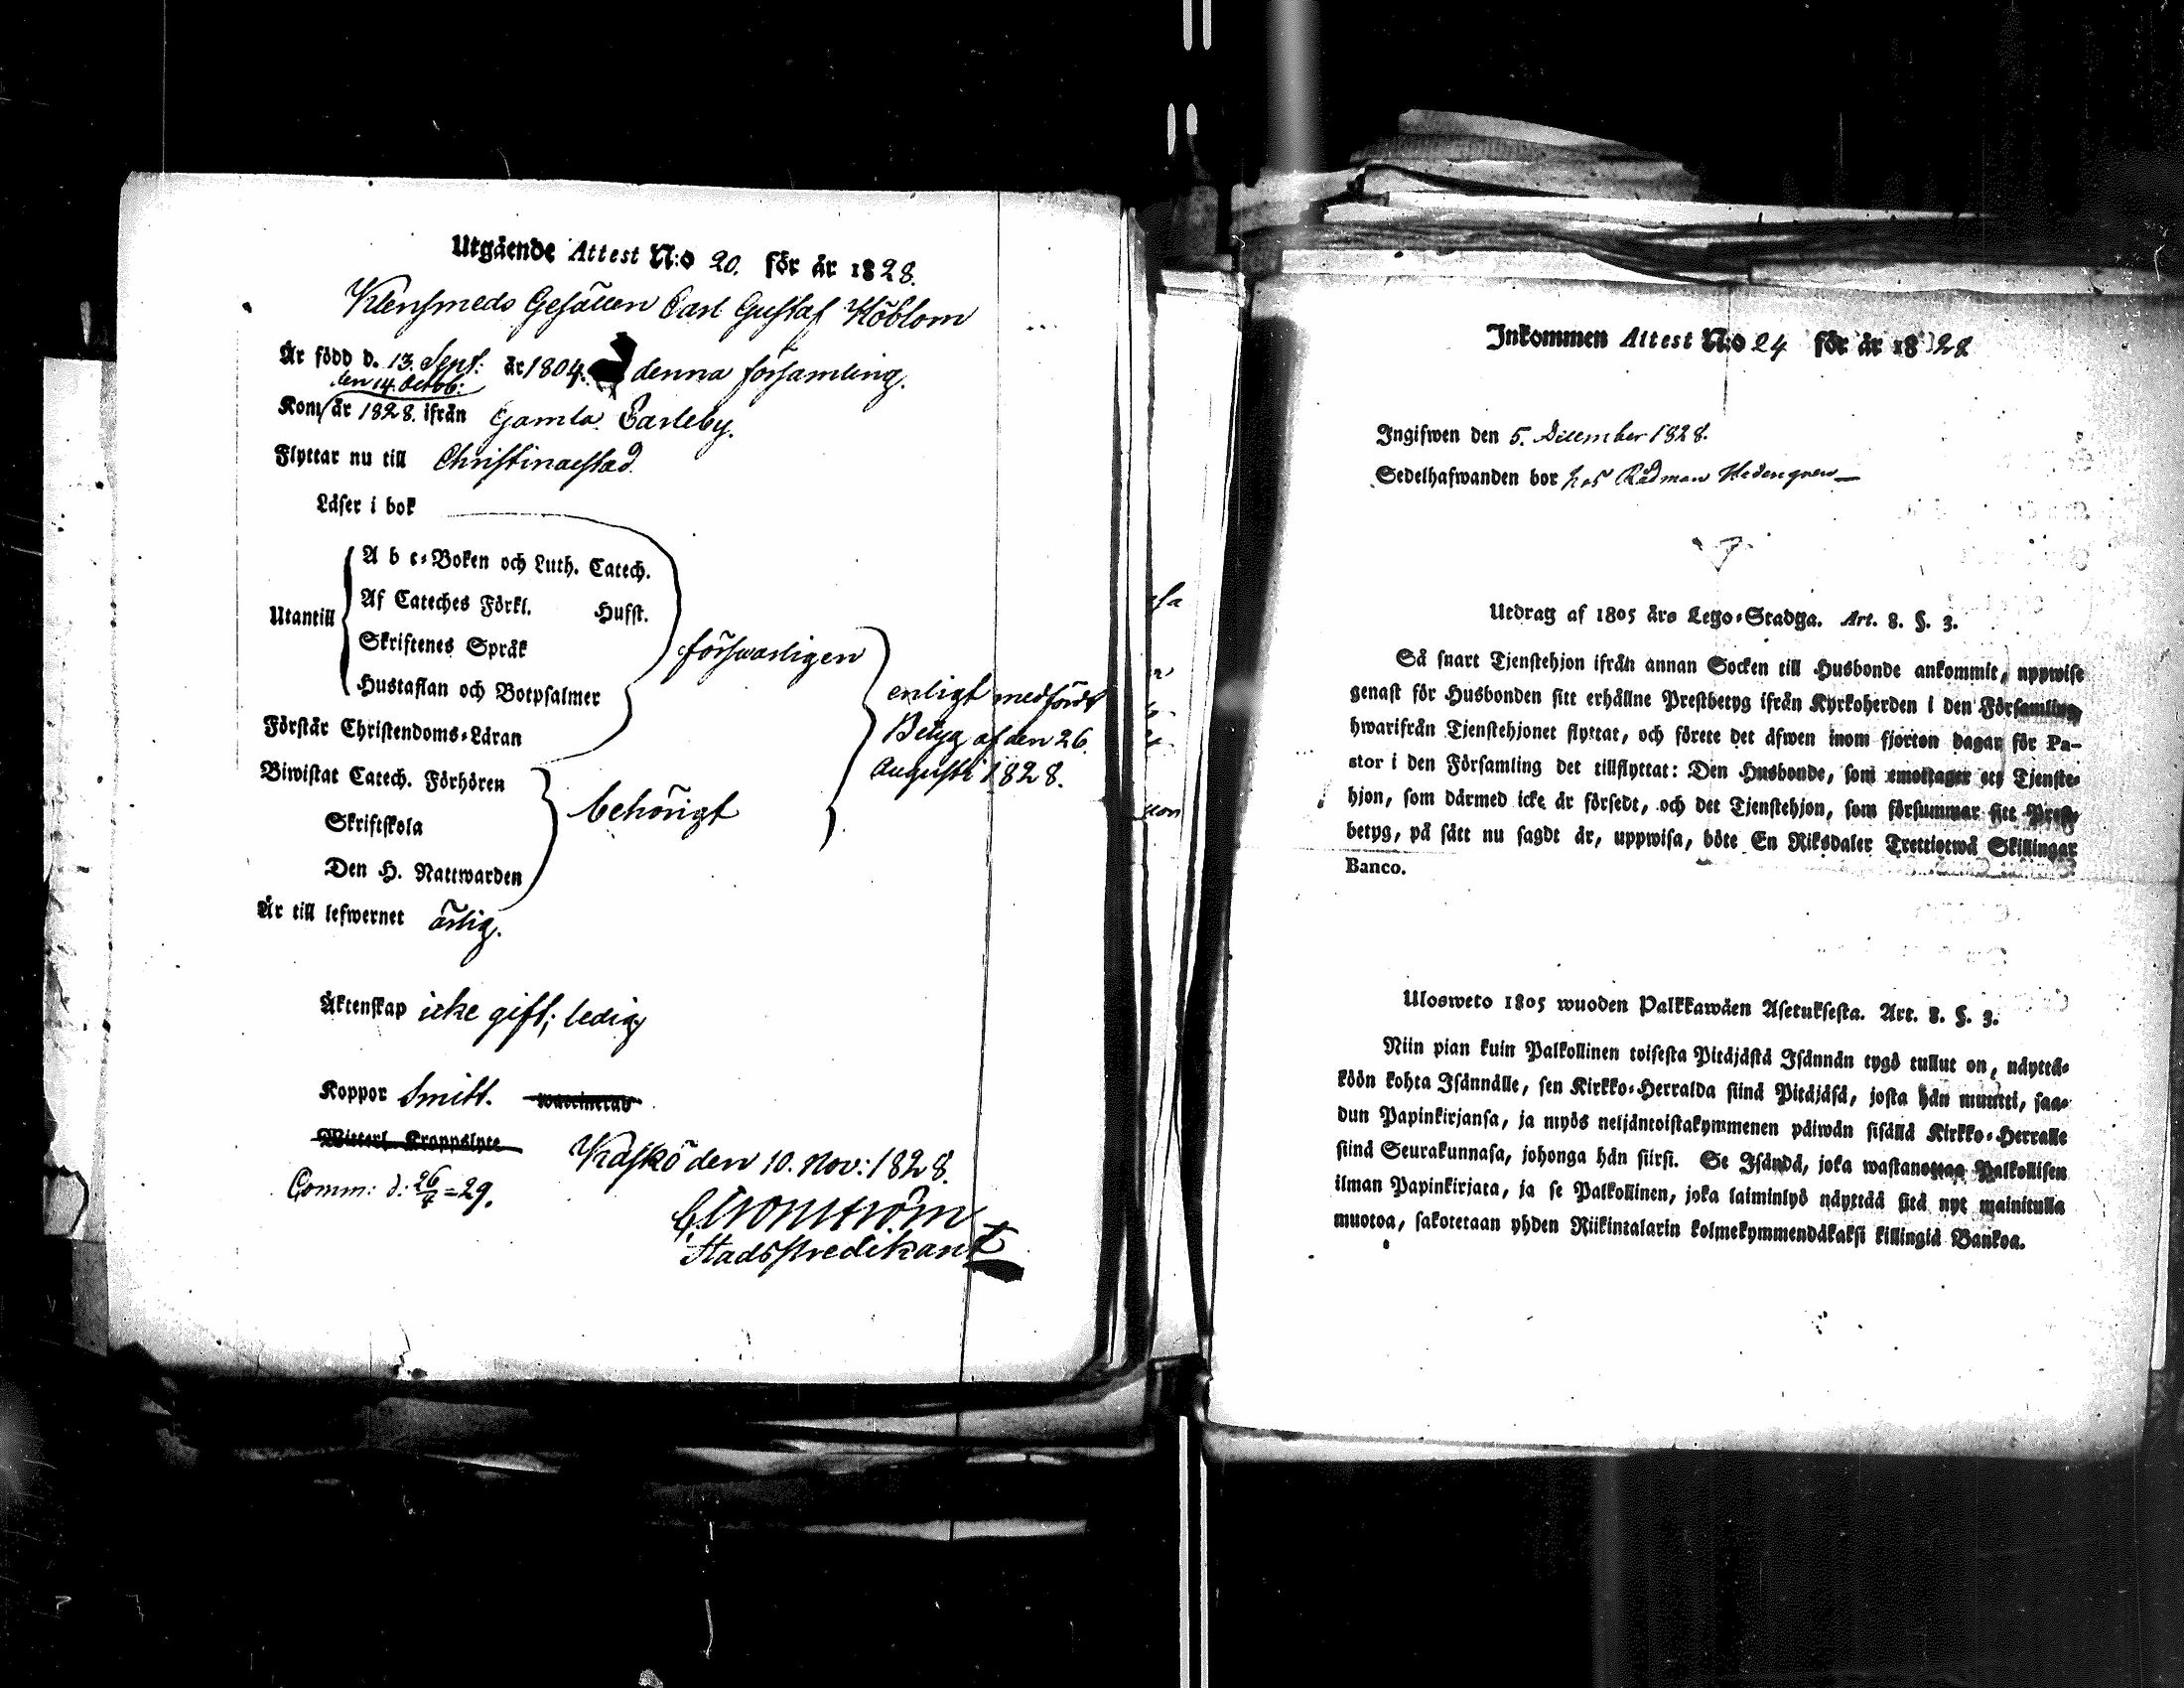 Utgående Attest N:o 20. för år 1828.
Klensmeds Gesällen Carl Gustaf Höblom
Är född d. 13. Sept: år 1804. denna församling.
den 14. Octob:
Kom år 1828. ifrån Gamla Carleby.
Flyttar nu till Christinaestad.
Läser i bok
A b c-Boken och Luth. Catech.
Af Cateches Förkl. Husst.
Utantill
Skriftenes Språk
Hustaflan och Botpsalmer
Förstår Christendoms-Läran
försvarligen
Biwistat Catech. Förhören
Skriftskola
Den H. Nattwarden
behörigt
enligt medfördt
Betyg af den 26.
Augusti 1828.
Är till lefwernet ärlig.
Äktenskap icke gift; ledig
Koppor Smitt. waccinerad
Witterl. Kroppslyte
Kaskö den 10. Nov: 1828.
Comm: d: 26/4 = 29.
Stadspredikant
Inkommen Attest N:o 24 för år 1828
Ingifwen den 5. December 1828.
Sedelhafwanden bor hos Rådman Hedengren
Utdrag af 1805 års Lego-Stadga. Art. 8. §. 3.
Så snart Tjenstehjon ifrån annan Socken till Husbonde ankommit, uppwise
genast för Husbonden sitt erhållne Prestbetyg ifrån Kyrkoherden i den Församling
hwarifrån Tjenstehjonet flyttat, och förete det äfwen inom fjorton dagar för Pa-
stor i den Församling det tillflyttat: Den Husbonde, som emottager ett Tjenste-
hjon, som därmed icke är försedt, och det Tjenstehjon, som försummar sitt Prest-
betyg, på sätt nu sagdt är, uppwisa, böte En Riksdaler Trettiotwå Skillingar
Banco.
Ulosweto 1805 wuoden Palkkawäen Asetuksesta. Art. 8. §. 3.
Niin pian kuin Palkollinen toisesta Pitäjästä Isännän tygö tullut on, näyttä-
köön kohta Isännälle, sen Kirkko-Herralda siinä Pitäjäsä, josta hän muutti, saa-
dun Papinkirjansa, ja myös neljäntoistakymmenen päiwän sisällä Kirkko-Herralle
siinä Seurakunnasa, johonga hän siirsi. Se Isändä, joka wastanottaa Palkollisen
ilman Papinkirjata, ja se Palkollinen, joka laiminlyö näyttää sitä nyt mainitulla
muotoa, sakotetaan yhden Riikintalarin kolmekymmendäkaksi killingiä Bankoa.